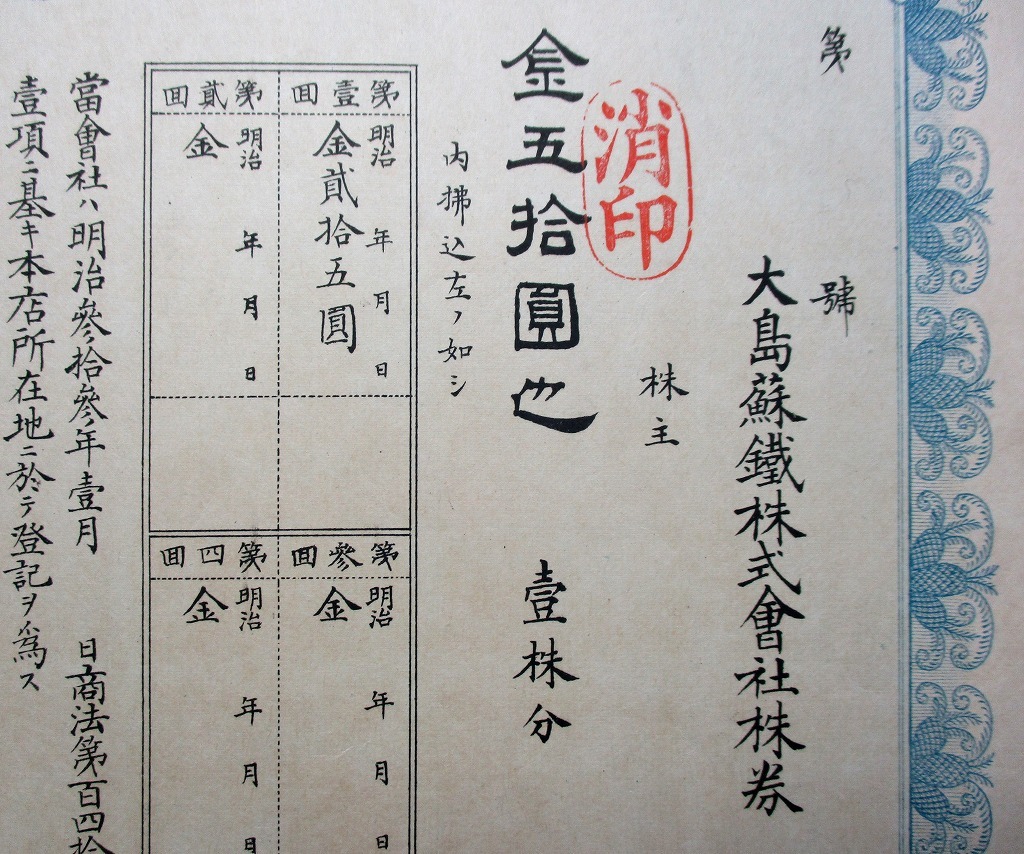 第 號
大島蘇鐵株式會社株券
株主
消印
金五拾圓也 壹株分
内拂込左ノ如シ
第壹回
明治 年 月 日
金貳拾五圓
第貳回
明治 年 月 日
金
第參回
明治 年 月 日
金
第四回
明治 年 月 日
金
當會社ハ明治參拾參年壹月 日商法第百四拾
壹項ニ基キ本店所在地ニ於テ登記ヲ爲ス